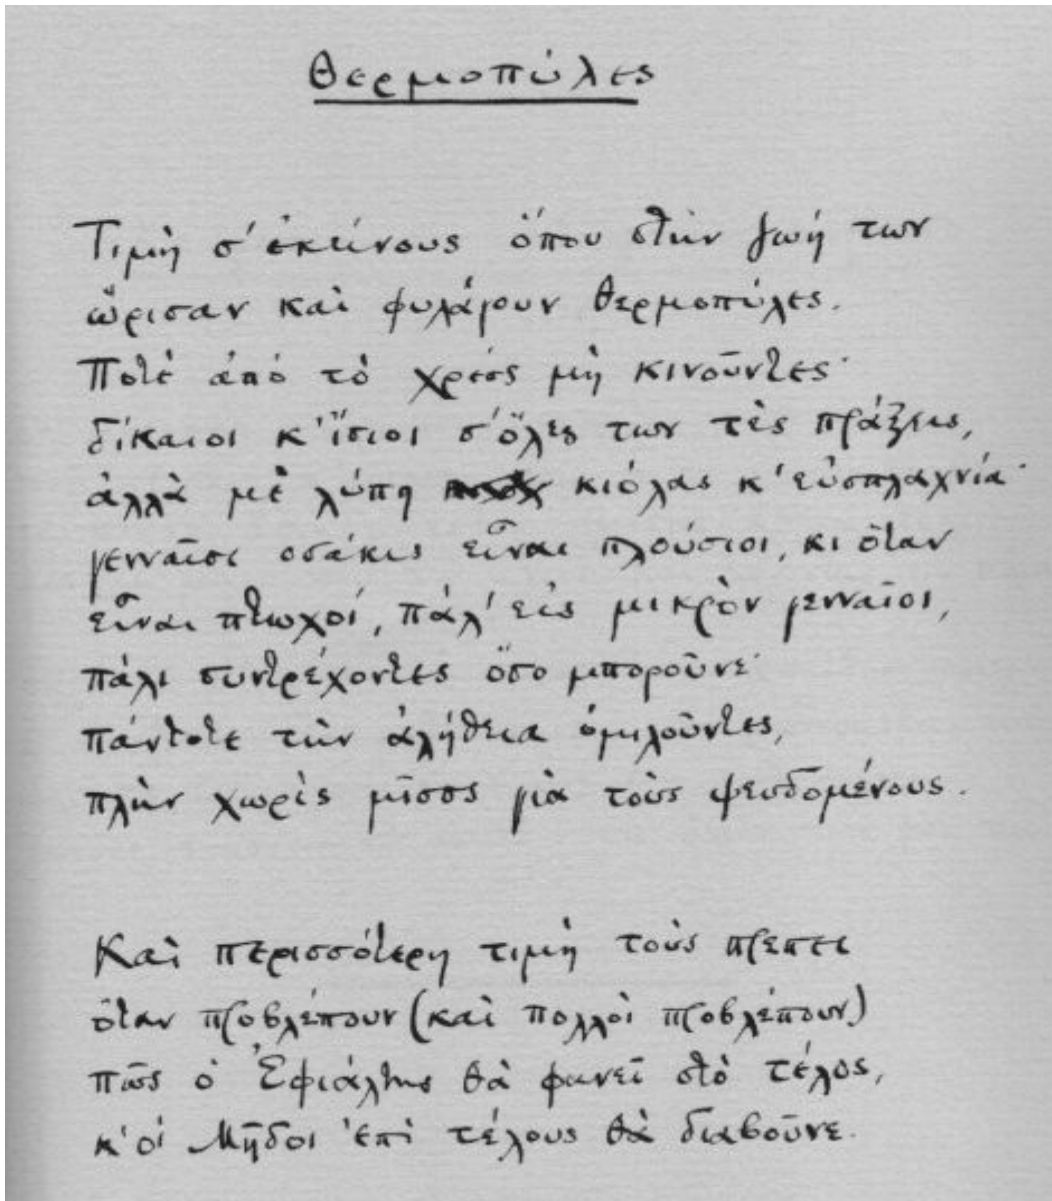 Θερμοπύλες
Τιμὴ σ' ἐκείνους ὅπου στὴν ζωή των
ὥρισαν καὶ φυλάγουν Θερμοπύλες.
Ποτὲ ἀπὸ τὸ χρέος μὴ κινοῦντες·
δίκαιοι κ' ἴσιοι σ' ὅλες των τὲς πράξεις,
ἀλλὰ μὲ λύπη κιόλας κ' εὐσπλαχνία·
γενναῖοι ὁσάκις εἶναι πλούσιοι, κι ὅταν
εἶναι πτωχοί, πάλ' εἰς μικρὸν γενναῖοι,
πάλι συντρέχοντες ὅσο μποροῦνε·
πάντοτε τὴν ἀλήθεια ὁμιλοῦντες,
πλὴν χωρὶς μῖσος γιὰ τοὺς ψευδομένους.
Καὶ περισσότερη τιμὴ τοὺς πρέπει
ὅταν προβλέπουν (καὶ πολλοὶ προβλέπουν)
πῶς ὁ Ἐφιάλτης θὰ φανεῖ στὸ τέλος,
κ' οἱ Μῆδοι ἐπὶ τέλους θὰ διαβοῦνε.